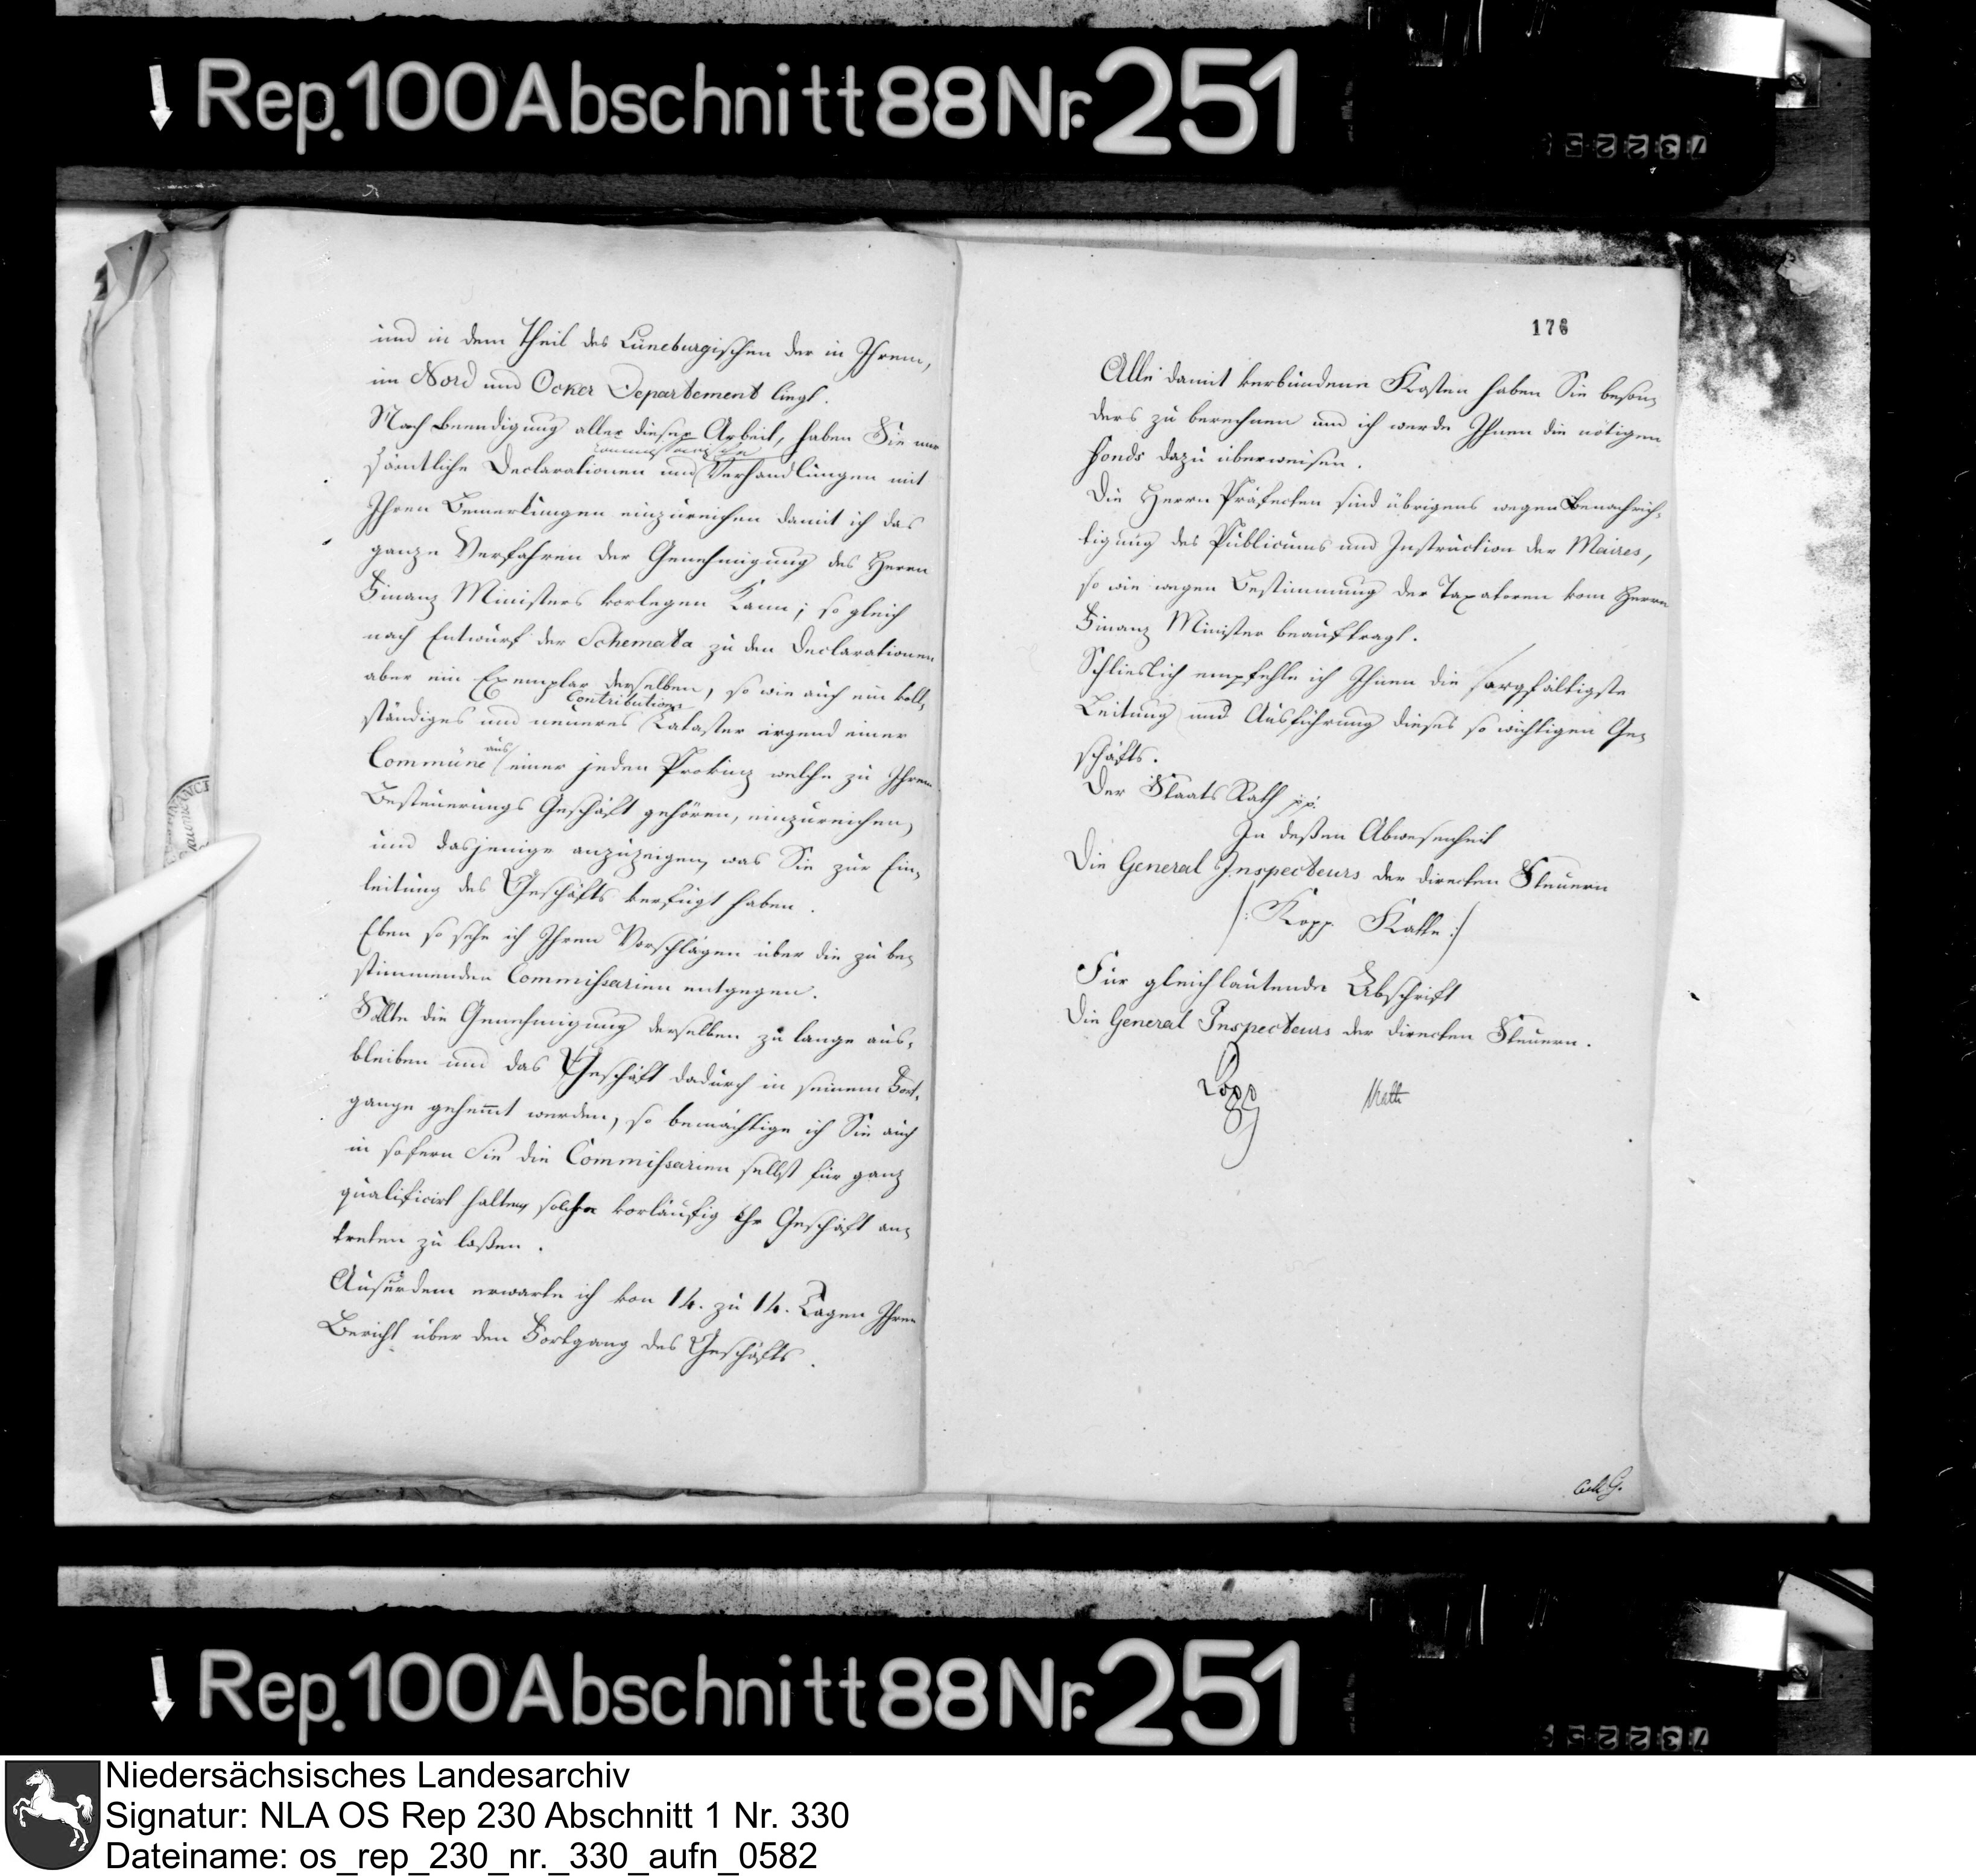 Rep. 100 Abschnitt 88 Nr. 251
und in dem Theil des Lüneburgischen der in Ihrem,
im Nord und Ocker Departement liegt.
Nach Beendigung aller dieser Arbeit, haben Sie mir
commissarische
sämtliche Declarationen und Verhandlungen mit
Ihren Bemerkungen einzureichen damit ich das
ganze Verfahren der Genehmigung des Herrn
Finanz Ministers vorlegen kann; so gleich
nach Entwurf der Schemata zu den Declarationen
aber ein Exemplar derselben, so wie auch ein voll,
Contributions
ständiges und neueres Cataster irgend einer
aus
Commüne einer jeden Provinz welche zu Ihrem
Besteuerungs Geschäft gehören, einzureichen,
und dasjenige anzuzeigen, was Sie zur Ein,
leitung des Geschäfts verfügt haben.
Eben so sehe ich Ihren Vorschlägen über die zu be,
stimmenden Commissarien entgegen.
Sollte die Genehmigung derselben zu lange aus,
bleiben und das Geschäft dadurch in seinem Fort,
gange gehemt werden, so bemächtige ich Sie auch
in sofern Sie die Commissarien selbst für ganz
qualificirt halten, solche vorläufig ihr Geschäft an,
treten zu laßen.
Ausserdem erwarte ich von 14. zu 14. Tagen Ihren
Bericht über den Fortgang des Geschäfts.
176
Alle damit verbundene Kosten haben Sie beson,
ders zu berechnen und ich werde Ihnen die nötigen
Fonds dazu überweisen.
Die Herrn Präfecten sind übrigens wegen Benachrich,
tigung des Publicums und Instruction der Maires,
so wie wegen Bestimmung der Taxatoren vom Herrn
Finanz Minister beauftragt.
Schlieslich empfehle ich Ihnen die sorgfältigste
Leitung und Ausführung dieses so wichtigen Ge,
schäfts.
Der Staats Rath pp.
In deßen Abwesenheit
Die General Inspecteurs der directen Steuern
/: Kopp. Malte :/
Für gleichlautende Abschrift
Die General Inspecteurs der directen Steuern.
Kopp
Rep. 100 Abschnitt 88 Nr. 251
Niedersächsisches Landesarchiv
Signatur: NLA OS Rep 230 Abschnitt 1 Nr. 330
Dateiname: os_rep_230_nr._330_aufn_0582